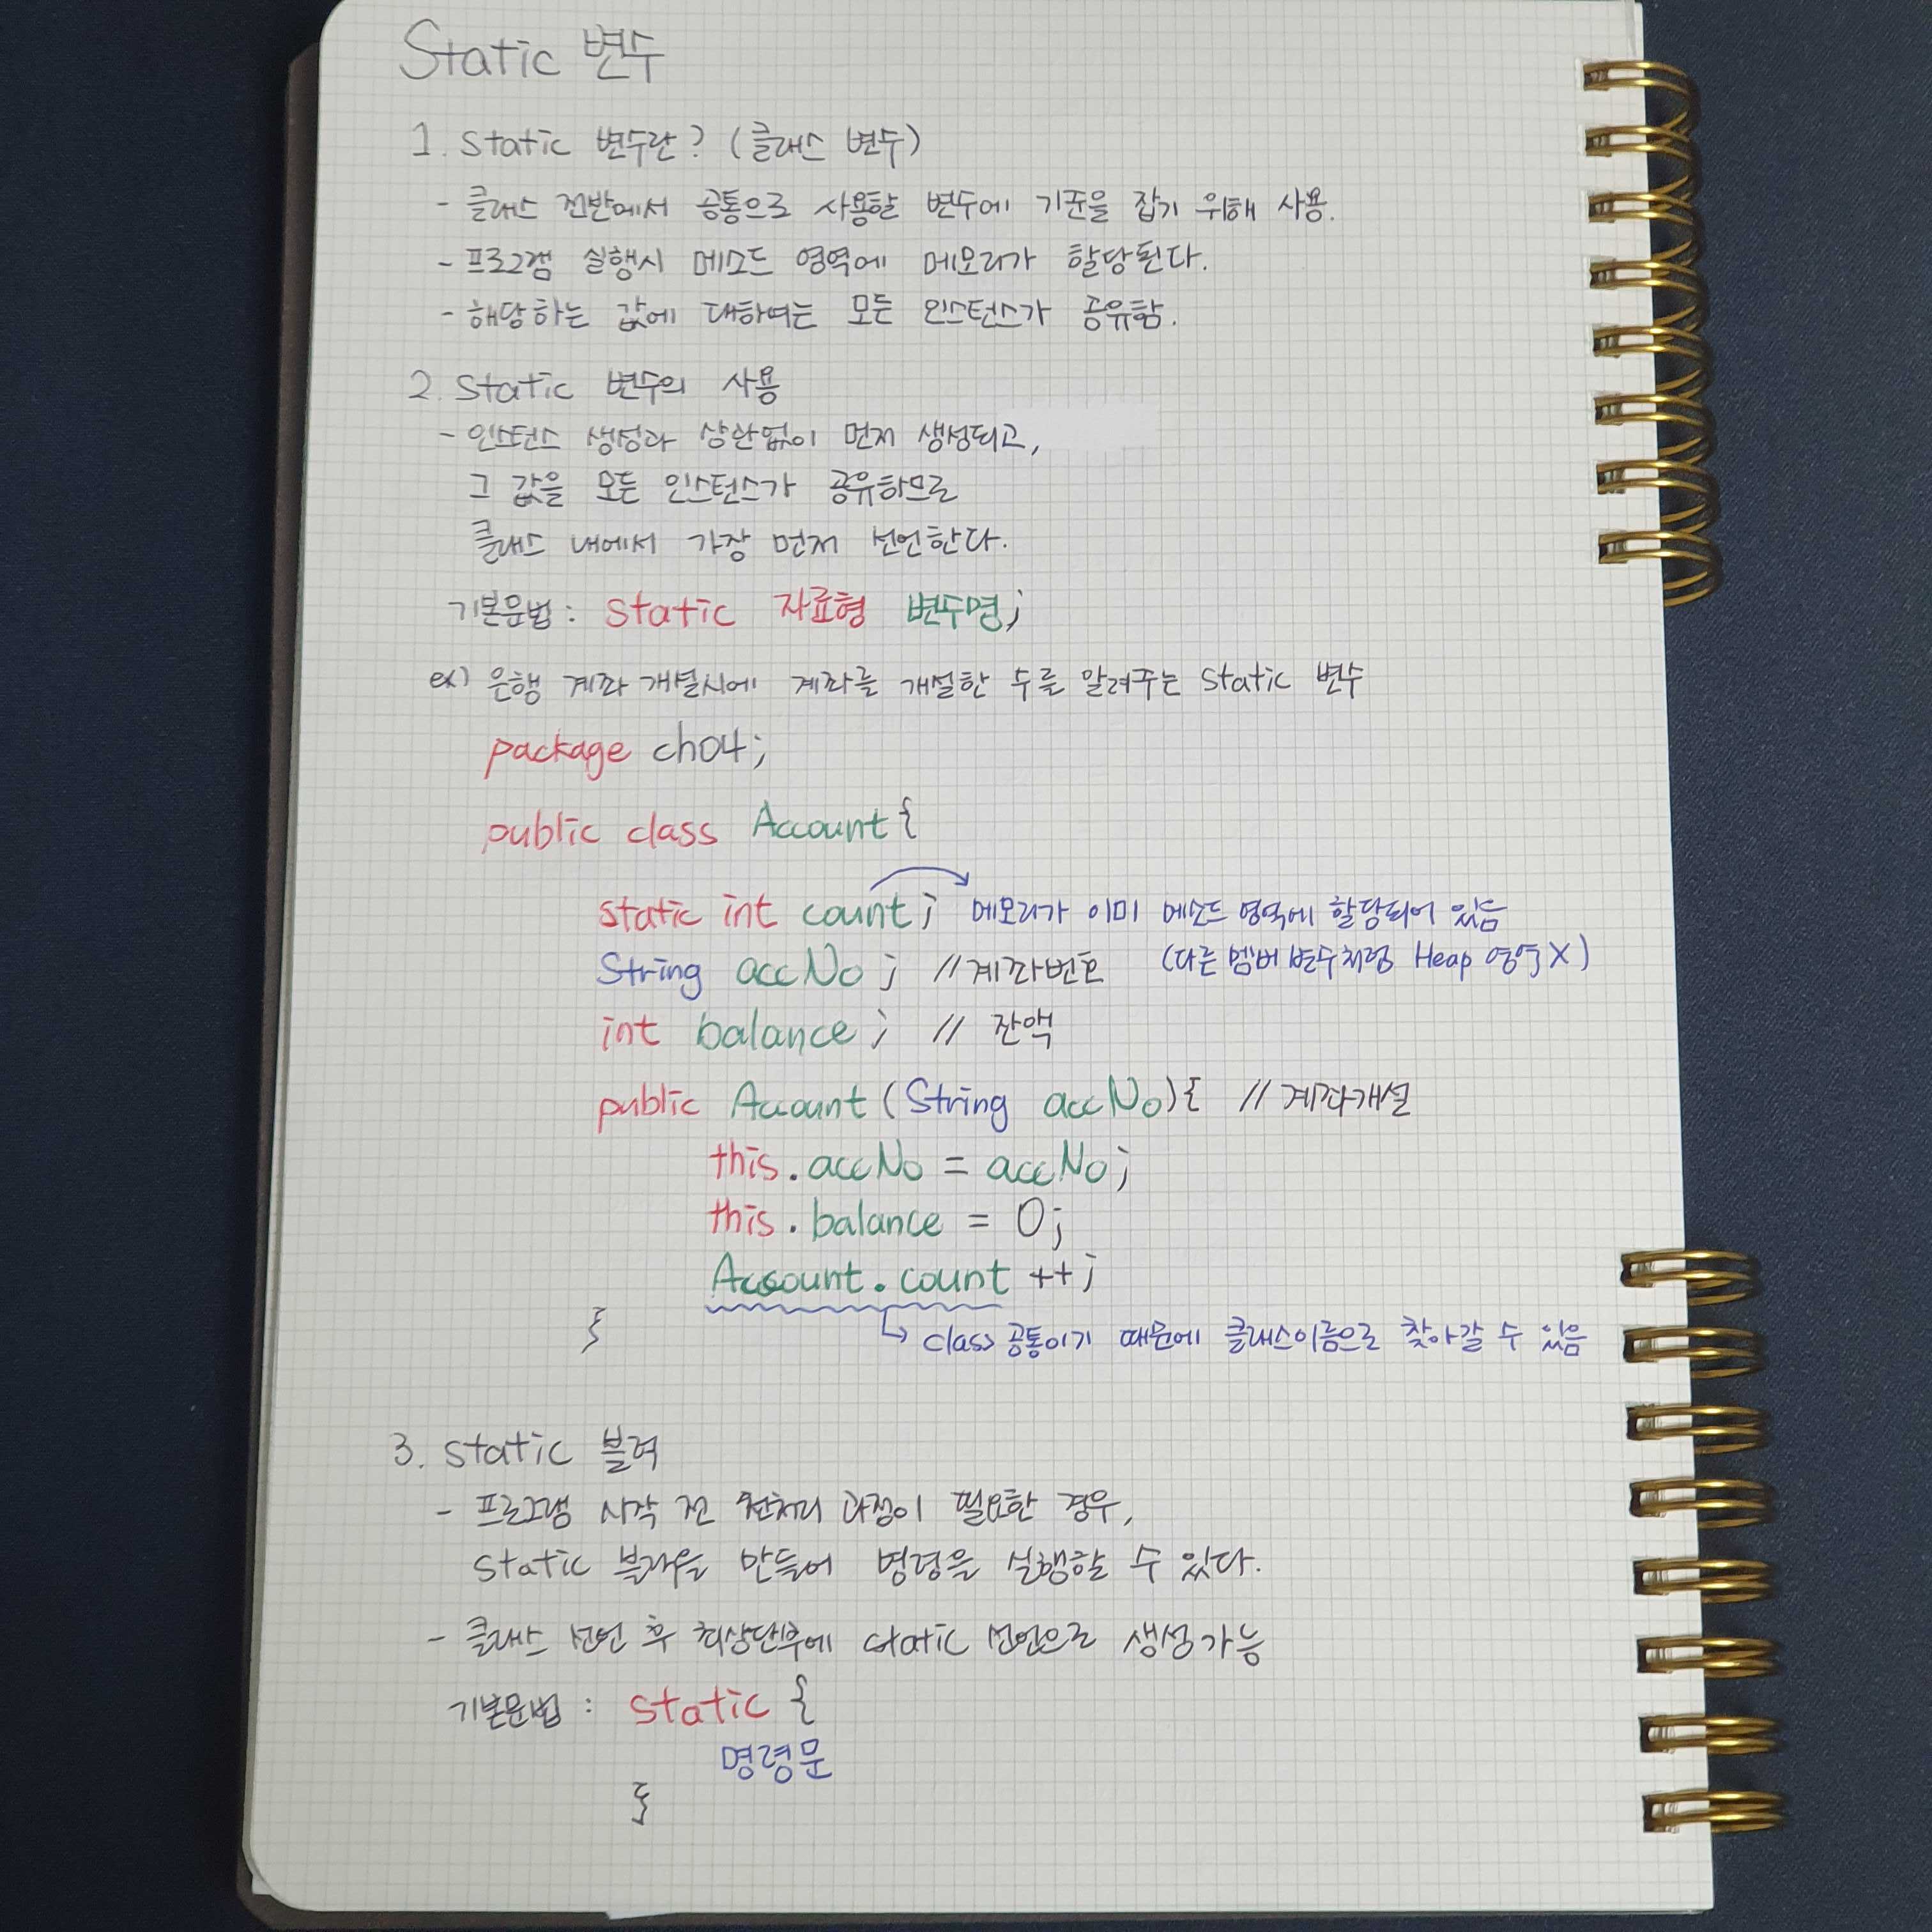 Static 변수
1. static 변수란? (클래스 변수)
- 클래스 전반에서 공통으로 사용할 변수에 기준을 잡기 위해 사용.
- 프로그램 실행시 메소드 영역에 메모리가 할당된다.
- 해당하는 값에 대하여는 모든 인스턴스가 공유함.
2. static 변수의 사용
- 인스턴스 생성과 상관없이 먼저 생성되고,
그 값을 모든 인스턴스가 공유하므로
클래스 내에서 가장 먼저 선언한다.
기본문법 : static 자료형 변수명;
ex) 은행 계좌 개설시에 계좌를 개설한 수를 알려주는 static 변수
package ch04;
public class Account{
static int count; 메모리가 이미 메소드 영역에 할당되어 있음
String accNo; //계좌번호 (다른 멤버 변수처럼 Heap 영역X)
int balance; // 잔액
public Account (String accNo){ // 계좌개설
this.accNo = accNo;
this.balance = 0;
Account.count ++;
}
class 공통이기 때문에 클래스이름으로 찾아갈 수 있음
3. static 블럭
- 프로그램 시작 전 전처리 과정이 필요한 경우,
static 블럭을 만들어 명령을 실행할 수 있다.
- 클래스 선언 후 최상단부에 static 선언으로 생성가능
기본문법 : static {
명령문
}